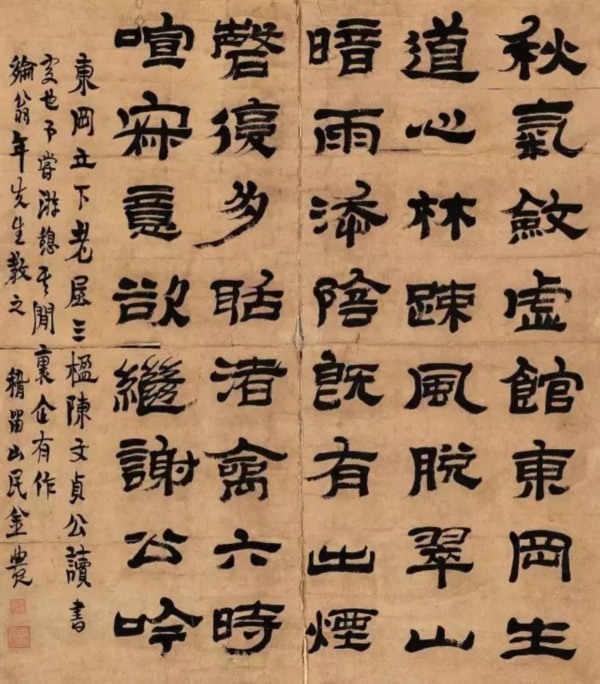 秋氣斂虛館東岡生
道心林疎風脫翠山
暗雨添陰既有出煙
磬復多聒渚禽六時
喧寂意欲繼謝公吟
東岡之下老屋三楹陳文貞公讀書
處也予嘗游憩其間褱企有作
綸翁年先生教之 稽留山民金農